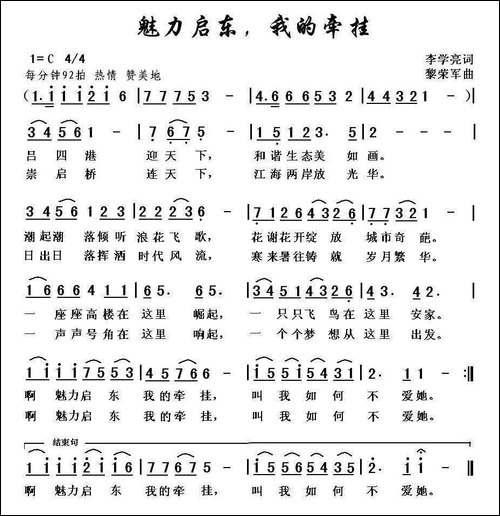 魅力启东，我的牵挂
1=C 4/4
李学亮词
每分钟92拍 热情 赞美地
黎荣军曲
(1. i i i 2 i 6 | 7 7 7 5 3 - | 4. 6 6 6 5 3 2 | 4 4 3 2 1 - )|
3 4 5 6 1 - | 7 6 7 5 - | 1 5 1 2 3 . 5 | 2 - 2 - |
吕四港 迎天下， 和谐生态美 如画。
崇启桥 连天下， 江海两岸放 光华。
3 4 5 6 1 2 3 | 2 2 2 3 - | 2 1 2 6 4 3 2 6 | 6 7 7 3 2 1 - |
潮起潮 落倾听 浪花飞歌， 花谢花开绽放 城市奇葩。
日出日 落挥洒 时代风流， 寒来暑往铸就 岁月繁华。
1 6 6 6 6 4 1 1 | 6 5. 6 5. | 3 4 5 1 4 3 2 1 | 4 3. 4 2. |
一座座高楼在这里 崛起， 一只只飞鸟在这里 安家。
一声声号角在这里 响起， 一个个梦想从这里 出发。
i i i i 7 i i 3 - | 4 5 7 6 6 - | i 5 5 6 5 4 3 5 1 | 2. 1 1 - :‖
啊 魅力启东 我的牵挂， 叫我如何不 爱她。
啊 魅力启东 我的牵挂， 叫我如何不 爱她。
结束句
1 i i i 2 i i 6 | 7 7 6 7 5 - | i 5 5 6 5 4 3 5 i | 2. i i - ‖
啊 魅力启东 我的牵挂， 叫我如何不 爱她。